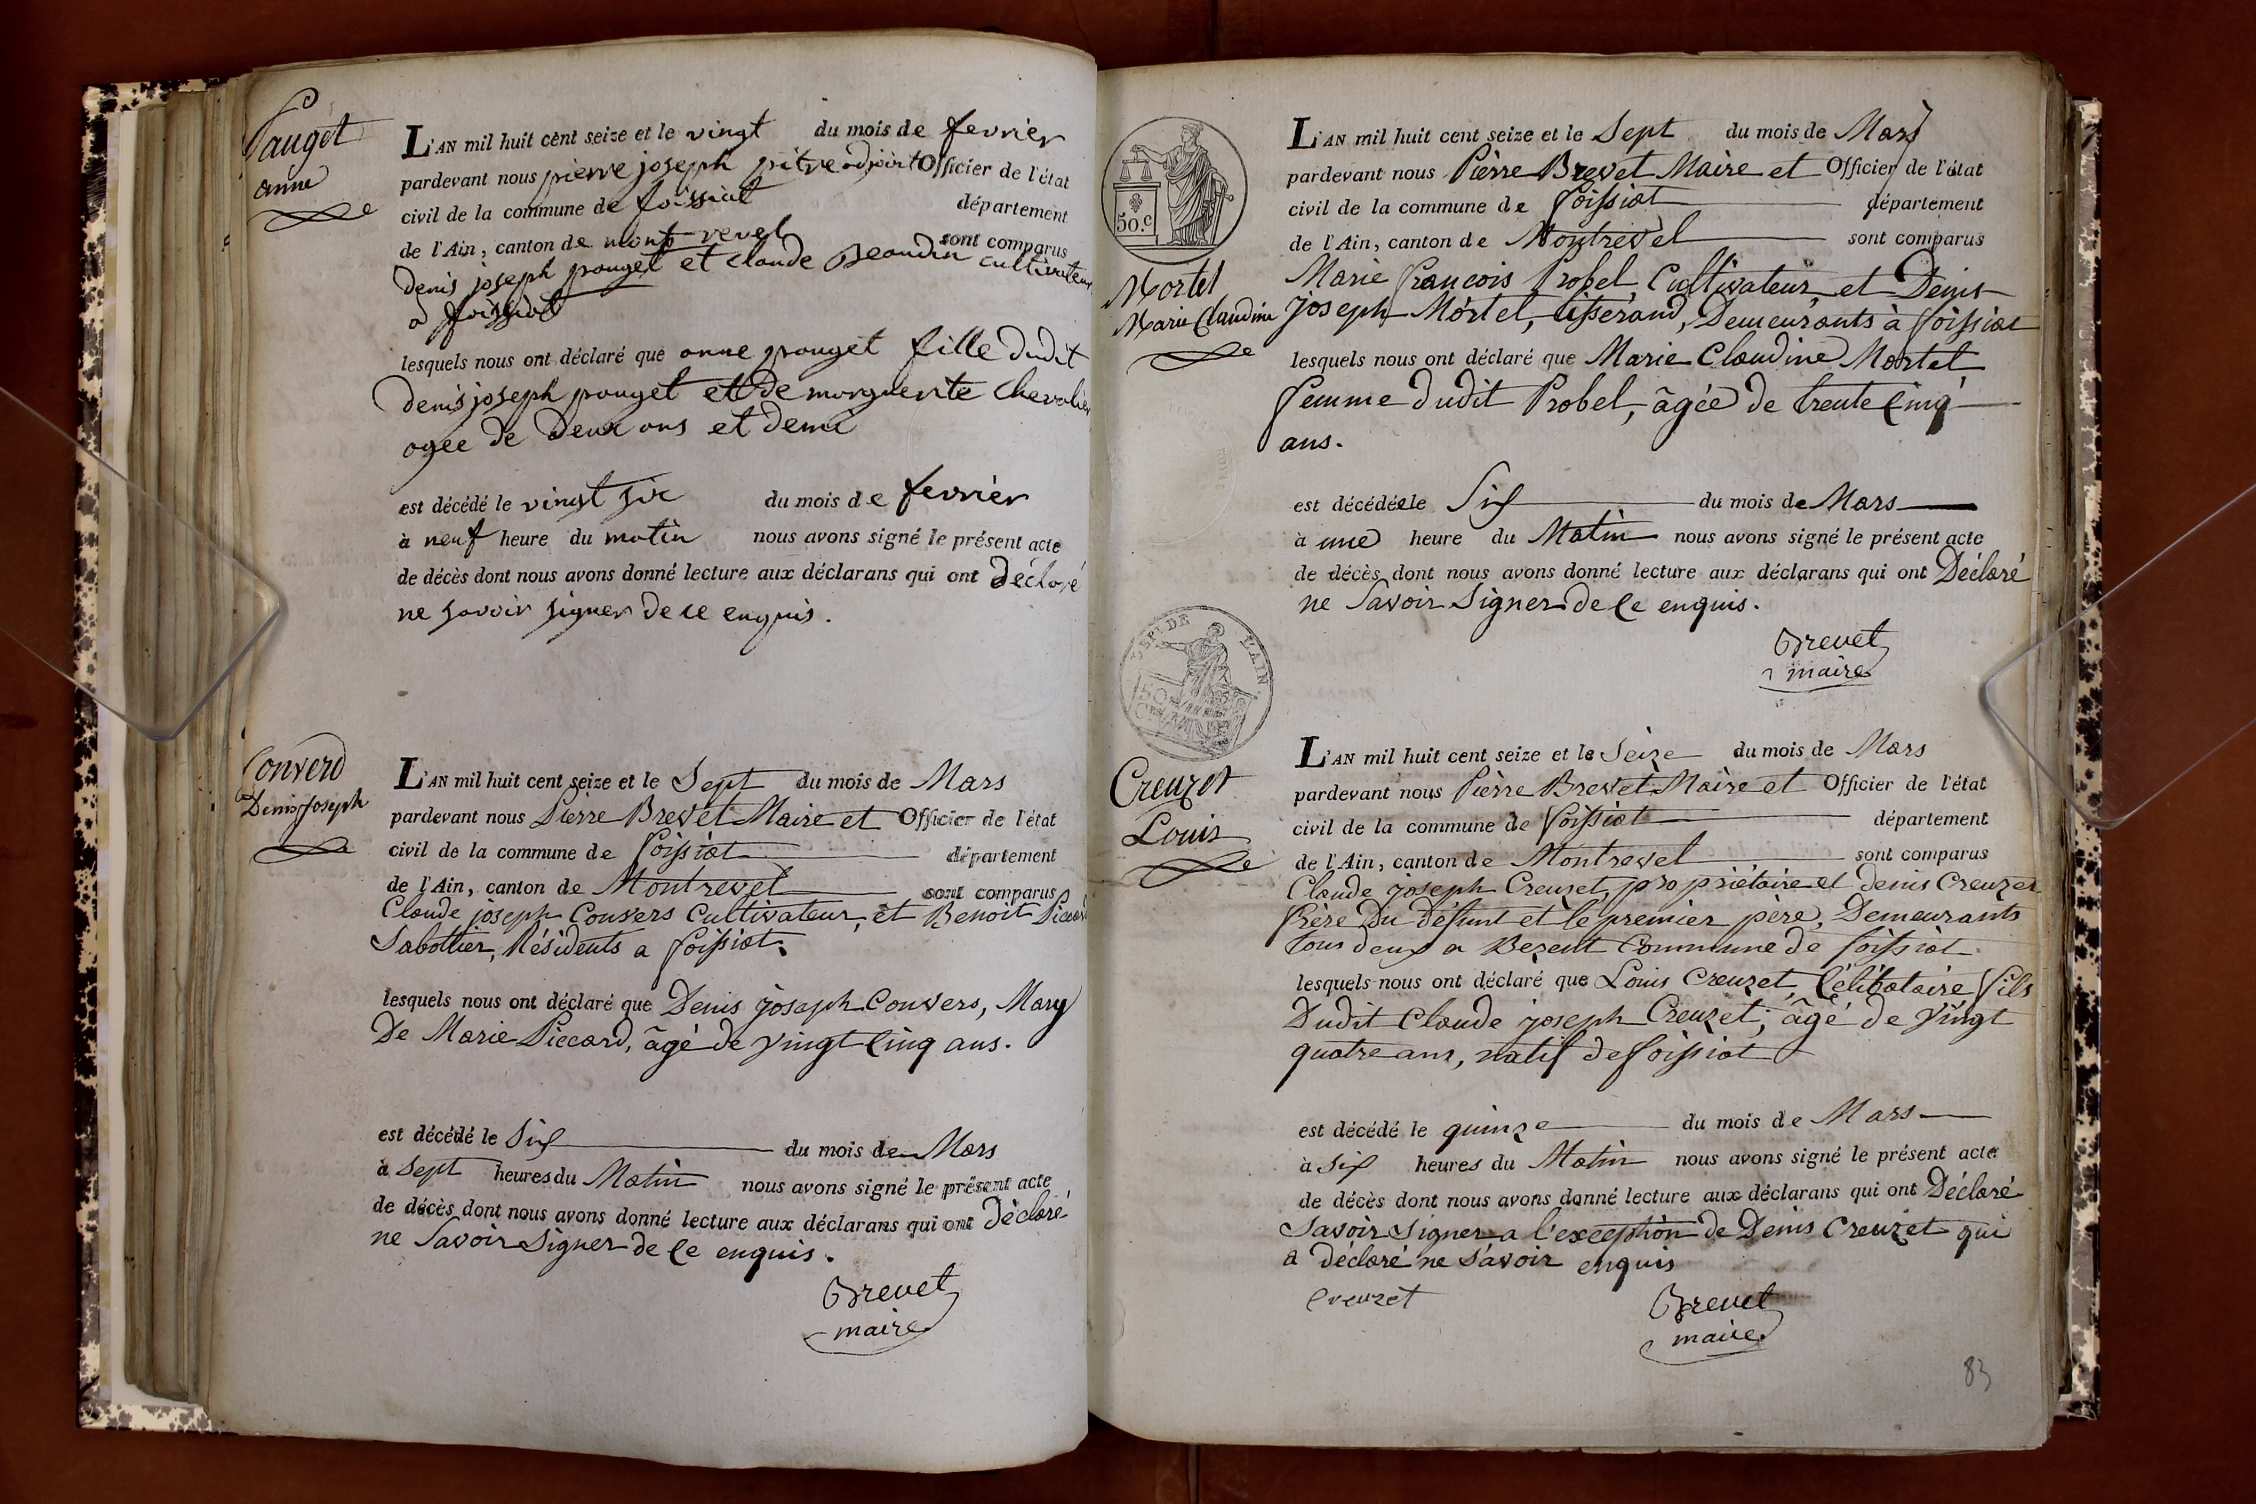 Pauget
anne
L'AN mil huit cent seize et le vingt du mois de fevrier
pardevant nous pierre joseph pitre adjoint Officier de l'état
civil de la commune de foissiat département
de l'Ain, canton de mont revel sont comparus
denis joseph pauget et claude Beaudin cultivateur
a foissiat
lesquels nous ont déclaré que anne pauget fille dudit
denis joseph pauget et de marguerite chevalier
agee de deux ans et demi
est décédé le vingt six du mois de fevrier
à neuf heure du matin nous avons signé le présent acte
de décès dont nous avons donné lecture aux déclarans qui ont déclaré
ne savoir signer de ce enquis.
Converd
Denis Joseph
L'AN mil huit cent seize et le Sept du mois de Mars
pardevant nous Pierre Brevet Maire et Officier de l'état
civil de la commune de foissiat département
de l'Ain, canton de Montrevel sont comparus
Claude joseph Convers Cultivateur, et Benoit Piccard
Sabottier, Résidents a foissiat.
lesquels nous ont déclaré que Denis joseph Convers, Mary
De Marie Piccard, âgé de vingt Cinq ans.
est décédé le Six du mois de Mars
à Sept heures du Matin nous avons signé le présent acte
de décès dont nous avons donné lecture aux déclarans qui ont Déclaré
ne Savoir Signer de Ce enquis.
Brevet
maire
50.c
Mortel
Marie Claudine
L'AN mil huit cent seize et le Sept du mois de Mars
pardevant nous Pierre Brevet Maire et Officier de l'état
civil de la commune de foissiat département
de l'Ain, canton de Montrevel sont comparus
Marie francois Probel Cultivateur, et Denis
joseph Mortel, tisserand, Demeurants à foissiat
lesquels nous ont déclaré que Marie Claudine Mortel
femme dudit Probel, âgée de trente Cinq
ans.
est décédée le Six du mois de Mars
à une heure du Matin nous avons signé le présent acte
de décès dont nous avons donné lecture aux déclarans qui ont Déclaré
ne Savoir Signer de Ce enquis.
Brevet
maire
DE L'AIN
50
Creuzet
Louis
L'AN mil huit cent seize et le Seize du mois de Mars
pardevant nous Pierre Brevet Maire et Officier de l'état
civil de la commune de foissiat département
de l'Ain, canton de Montrevel sont comparus
Claude joseph Creuzet, propriétaire et denis Creuzet
frère du défunt et le premier père, Demeurants
tous deux a Bezent Commune de foissiat
lesquels nous ont déclaré que Louis Creuzet, Célibataire fils
Dudit Claude joseph Creuzet, âgé de vingt
quatre ans, natif de foissiat
est décédé le quinze du mois de Mars
à six heures du Matin nous avons signé le présent acte
de décès dont nous avons donné lecture aux déclarans qui ont Déclaré
Savoir Signer a l'exception de Denis Creuzet qui
a déclaré ne Savoir enquis
Creuzet
Brevet
maire
83